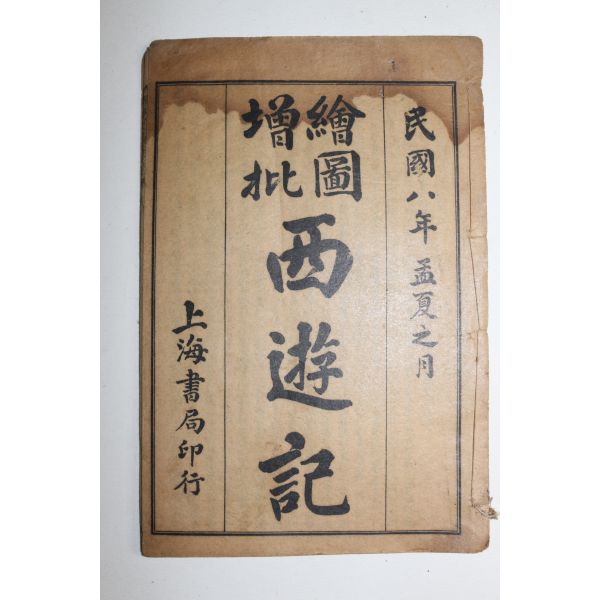 民國八年 孟夏之月
繪圖
增批
西遊記
上海書局印行